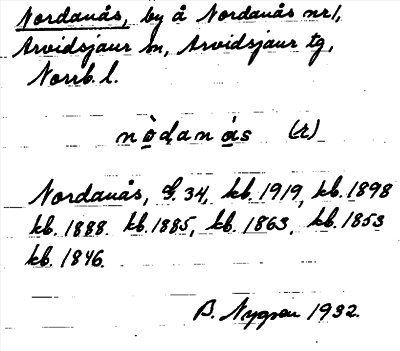 Nordanås, by å Nordanås nr 1,
Arvidsjaur sn, Arvidsjaur tg,
Norrb. l.
nòḍanás (r)
Nordanås, G. 34, kb. 1919, kb. 1898
kb. 1888 kb. 1885, kb. 1863, kb. 1853
kb. 1846.
B. Nygren 1932.